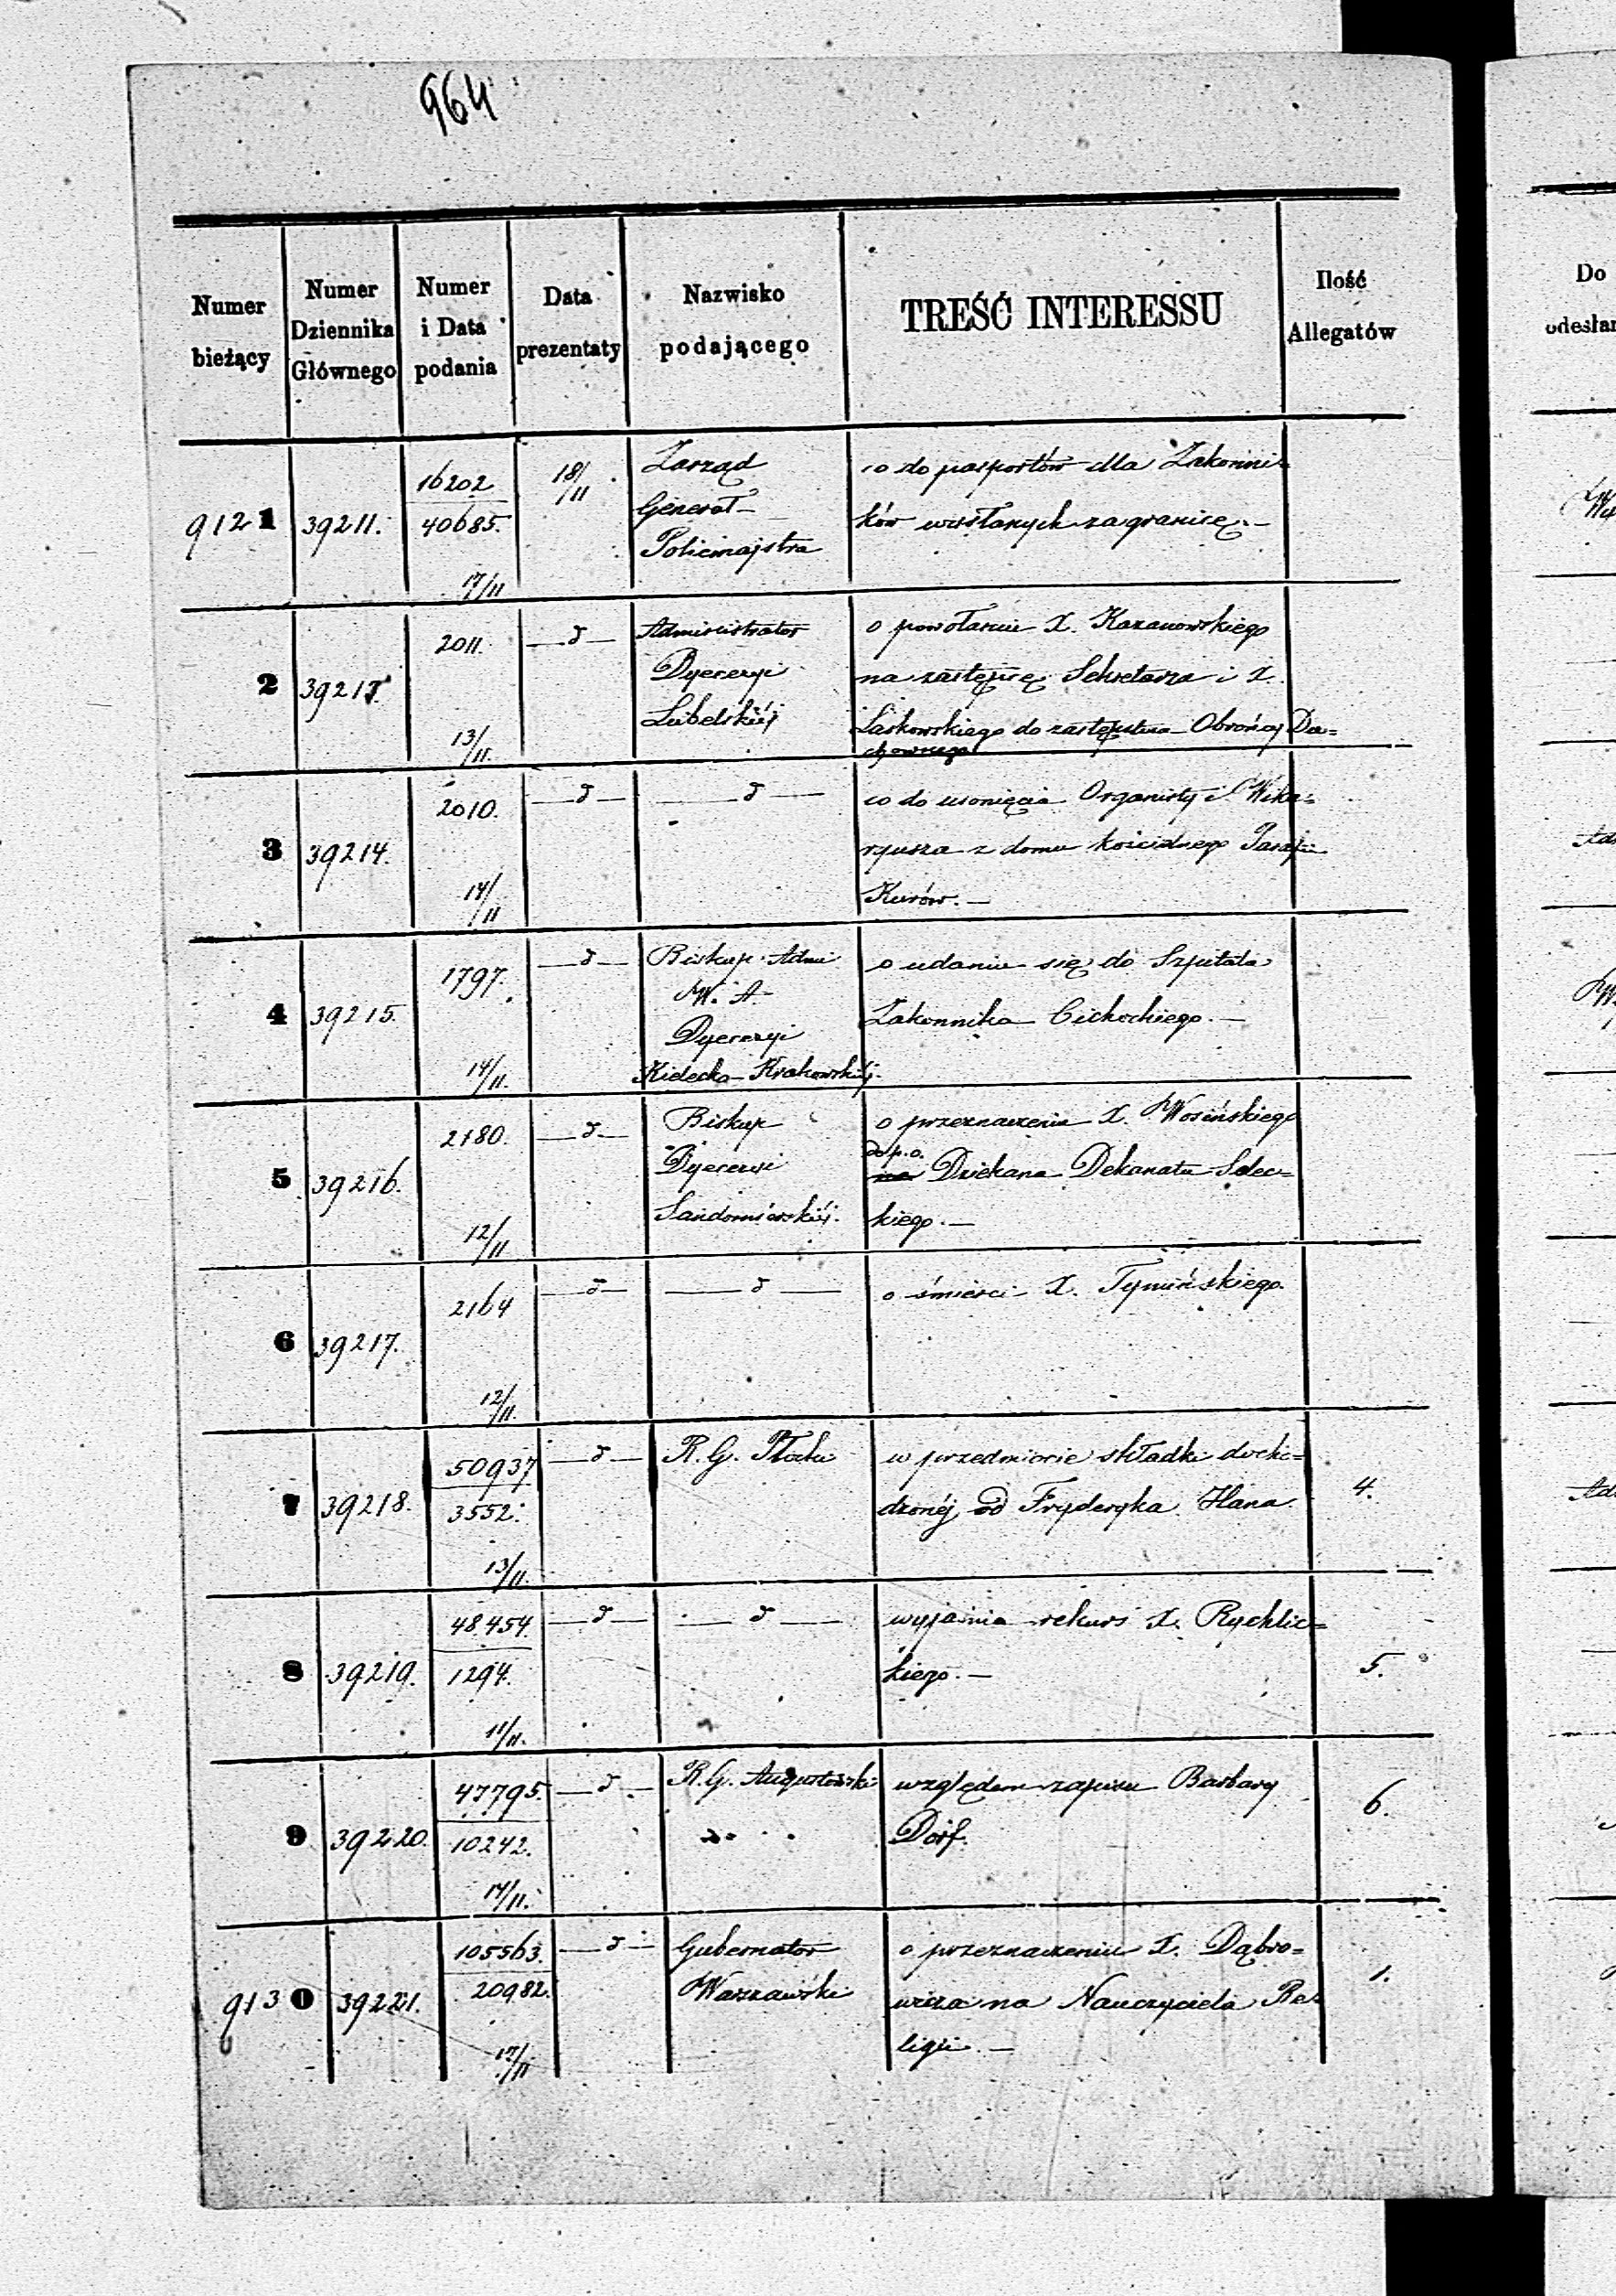 964
Numer bieżący
Numer Dziennika Głównego
Numer i Data podania
Data prezentaty
Nazwisko podającego
TREŚĆ INTERESSU
Ilość Allegatów
Do
odesłan
9121 39211. 16202 40685. 17/11 18/11
Zarząd
Generał-
Policmajstra
co do pasportów dla Zakonni-
ków wysłanych zagranicę.—
2 2011. 13/11. —d—
Administrator
Dyecezyi
Lubelskiéj
o powołaniu X. Kazanowskiego
na zastępcę Sekretarza i X.
Laskowskiego do zastępstwa Obrońcy Du=
chownego
3 39214. 2010. 14/11 —d— —d—
co do usunięcia Organisty i Wika=
ryusza z domu kościelnego Parafii
Kurów.—
4 39215. 1797. 14/11. —d—
Biskup Admi
W. A.
Dyecezyi
Kielecko-Krakowskiéj.
o udaniu się do Szpitala
Zakonnika Cichockiego.—
5 39216. 2180. 12/11 —d—
Biskup
Dyecezyi
Sandomierskiéj.
o przeznaczeniu X. Wosińskiego
do p.o.
na Dziekana Dekanatu Solec=
kiego.—
6 39217. 2164 12/11. —d— —d—
o śmierci X. Tymińskiego.
7 39218. 50937 3552. 13/11. —d—
R. G. Płocki
w przedmiocie składki docho=
dzonéj od Fryderyka Hana.
4.
8 39219. 48.454. 1294. 11/11. —d— —d—
wyjaśnia rekurs X. Rychlic=
kiego.—
5.
9 39220. 47795. 10242. 14/11. —d—
R. G. Augustowski
względem zapisu Barbary
Dorf.
6.
9130 39221. 105563. 20982. 17/11 —d—
Gubernator
Warszawski
o przeznaczeniu X. Dąbro=
wicza na Nauczyciela Re=
ligii.—
1.